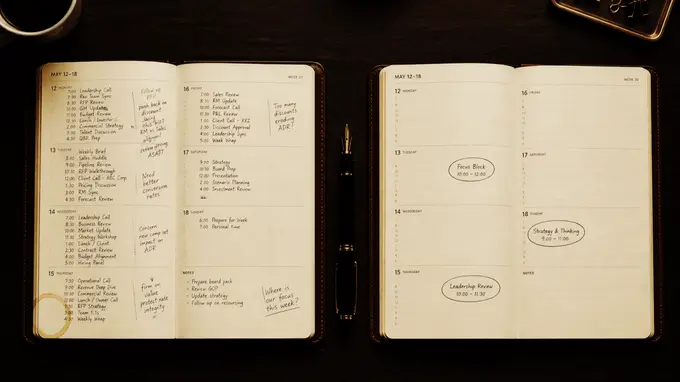 MAY 12-18
12 MONDAY
7:00 Leadership Call
Rev Team Sync
RFP Review
GM Updates
Budget Review
Lunch / Investor C
Commercial Strategy
Talent Discussion
QBR Prep
Follow up
RFP
push back on
discount
13 TUESDAY
Weekly Brief
8:00 Sales Huddle
9:00 Pipeline Review
RFP Walkthrough
12:00 Client Call - ABC Corp
1:00 Pricing Discussion
3:00 RM Sync
4:30 Forecast Review
Need
better
conversion
rates
14 WEDNESDAY
7:00 Leadership Call
8:30 Business Review
10:00 Market Update
11:30 Strategy Workshop
1:00 Lunch / Client
2:30 Contract Review
4:00 Budget Alignment
5:00 Hiring Panel
Concern
new comp set
impact on
ADR
15 THURSDAY
7:30 Operational Call
9:00 Revenue Deep Dive
10:30 Commercial Review
Lunch / Owner Call
RFP Strategy
Team 1:1s
Weekly Wrap
firm on
value
protect rate
integrity
WEEK 20
16 FRIDAY
7:00 Sales Review
8:30 RM Update
10:00 Forecast Call
11:30 P&L Review
1:00 Client Call - XYZ
2:30 Discount Approval
4:00 Leadership Sync
5:00 Week Wrap
Too many
discounts
eroding
ADR?
17 SATURDAY
9:00 Strategy
10:30 Board Prep
12:00 Presentation
2:00 Scenario Planning
4:00 Investment Review
18 SUNDAY
6:00 Prepare for Week
7:00 Personal time
NOTES
- Prepare board pack
- Review GOP
- Update strategy
- Follow up on resourcing
Where is
our focus
this week?
MAY 12-18
12 MONDAY
13 TUESDAY
Focus Block
10:00 - 12:00
14 WEDNESDAY
15 THURSDAY
Leadership Review
10:00 - 11:30
WEEK 20
16 FRIDAY
17 SATURDAY
18 SUNDAY
Strategy & Thinking
9:00 - 11:00
NOTES